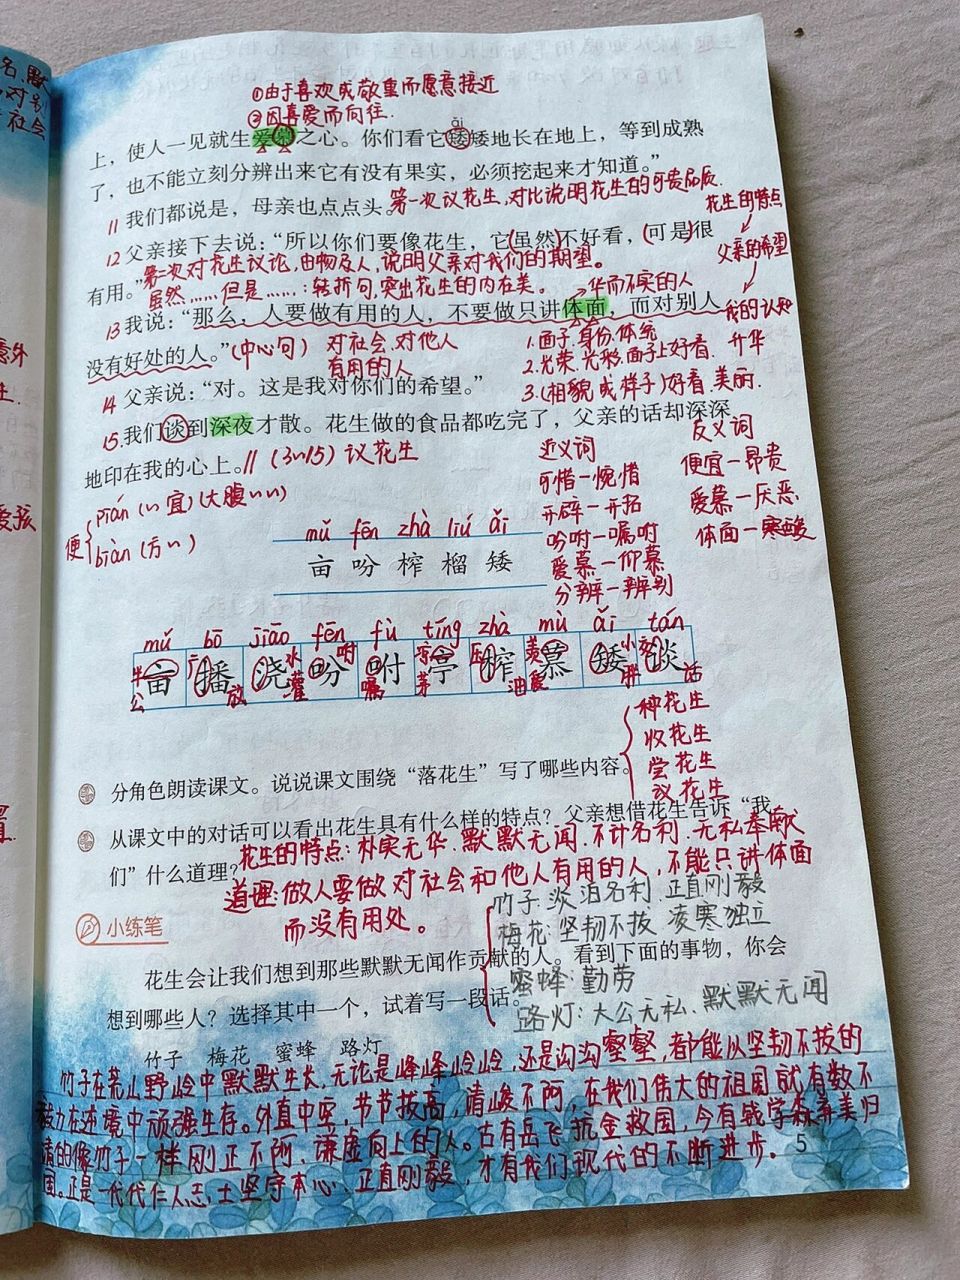 名、默
对别
社会
①由于喜欢或敬重而愿意接近
②因喜爱而向往.
ǎi
上，使人一见就生爱慕之心。你们看它矮矮地长在地上，等到成熟
了，也不能立刻分辨出来它有没有果实，必须挖起来才知道。”
11 我们都说是，母亲也点点头。第一次议花生，对比说明花生的可贵品质.
花生的特点
12 父亲接下去说：“所以你们要像花生，它(虽然)不好看，(可是)很
父亲的希望
第二次对花生议论，由物及人，说明父亲对我们的期望。
有用。”虽然……但是……：转折句，突出花生的内在美。
华而不实的人
13 我说：“那么，人要做有用的人，不要做只讲体面，而对别人
我的认知
没有好处的人。”(中心句) 对社会、对他人
有用的人
1.面子、身份、体统
2.光荣、光彩、面子上好看.
升华
3.(相貌或样子)好看、美丽.
14 父亲说：“对。这是我对你们的希望。”
15.我们谈到深夜才散。花生做的食品都吃完了，父亲的话却深深
地印在我的心上。// (3~15) 议花生
便
pián (~宜)(大腹~~)
biàn (方~)
近义词
可惜—惋惜
开辟—开拓
吩咐—嘱咐
爱慕—仰慕
分辨—辨别
反义词
便宜—昂贵
爱慕—厌恶.
体面—寒酸
mǔ fēn zhà liú ǎi
亩 吩 榨 榴 矮
mǔ bō jiāo fēn fù tíng zhà mù ǎi tán
亩 播 浇 吩 咐 亭 榨 慕 矮 谈
种花生
收花生
尝花生
议花生
分角色朗读课文。说说课文围绕“落花生”写了哪些内容。
从课文中的对话可以看出花生具有什么样的特点？父亲想借花生告诉“我
们”什么道理？花生的特点：朴实无华、默默无闻、不计名利、无私奉献
道理：做人要做对社会和他人有用的人，不能只讲体面
而没有用处。
小练笔
竹子：淡泊名利、正直刚毅
梅花：坚韧不拔 凌寒独立
花生会让我们想到那些默默无闻作贡献的人。看到下面的事物，你会
蜜蜂：勤劳
想到哪些人？选择其中一个，试着写一段话。
路灯：大公无私、默默无闻
竹子 梅花 蜜蜂 路灯
竹子在荒山野岭中默默生长，无论是峰峰岭岭，还是沟沟壑壑，都能以坚韧不拔的
毅力在逆境中顽强生存。外直中空，节节拔高，清峻不阿，在我们伟大的祖国就有数不
清的像竹子一样刚正不阿、谦虚向上的人。古有岳飞抗金救国，今有钱学森弃美归
国。正是一代代仁人志士坚守本心、正直刚毅，才有我们现代的不断进步.
5